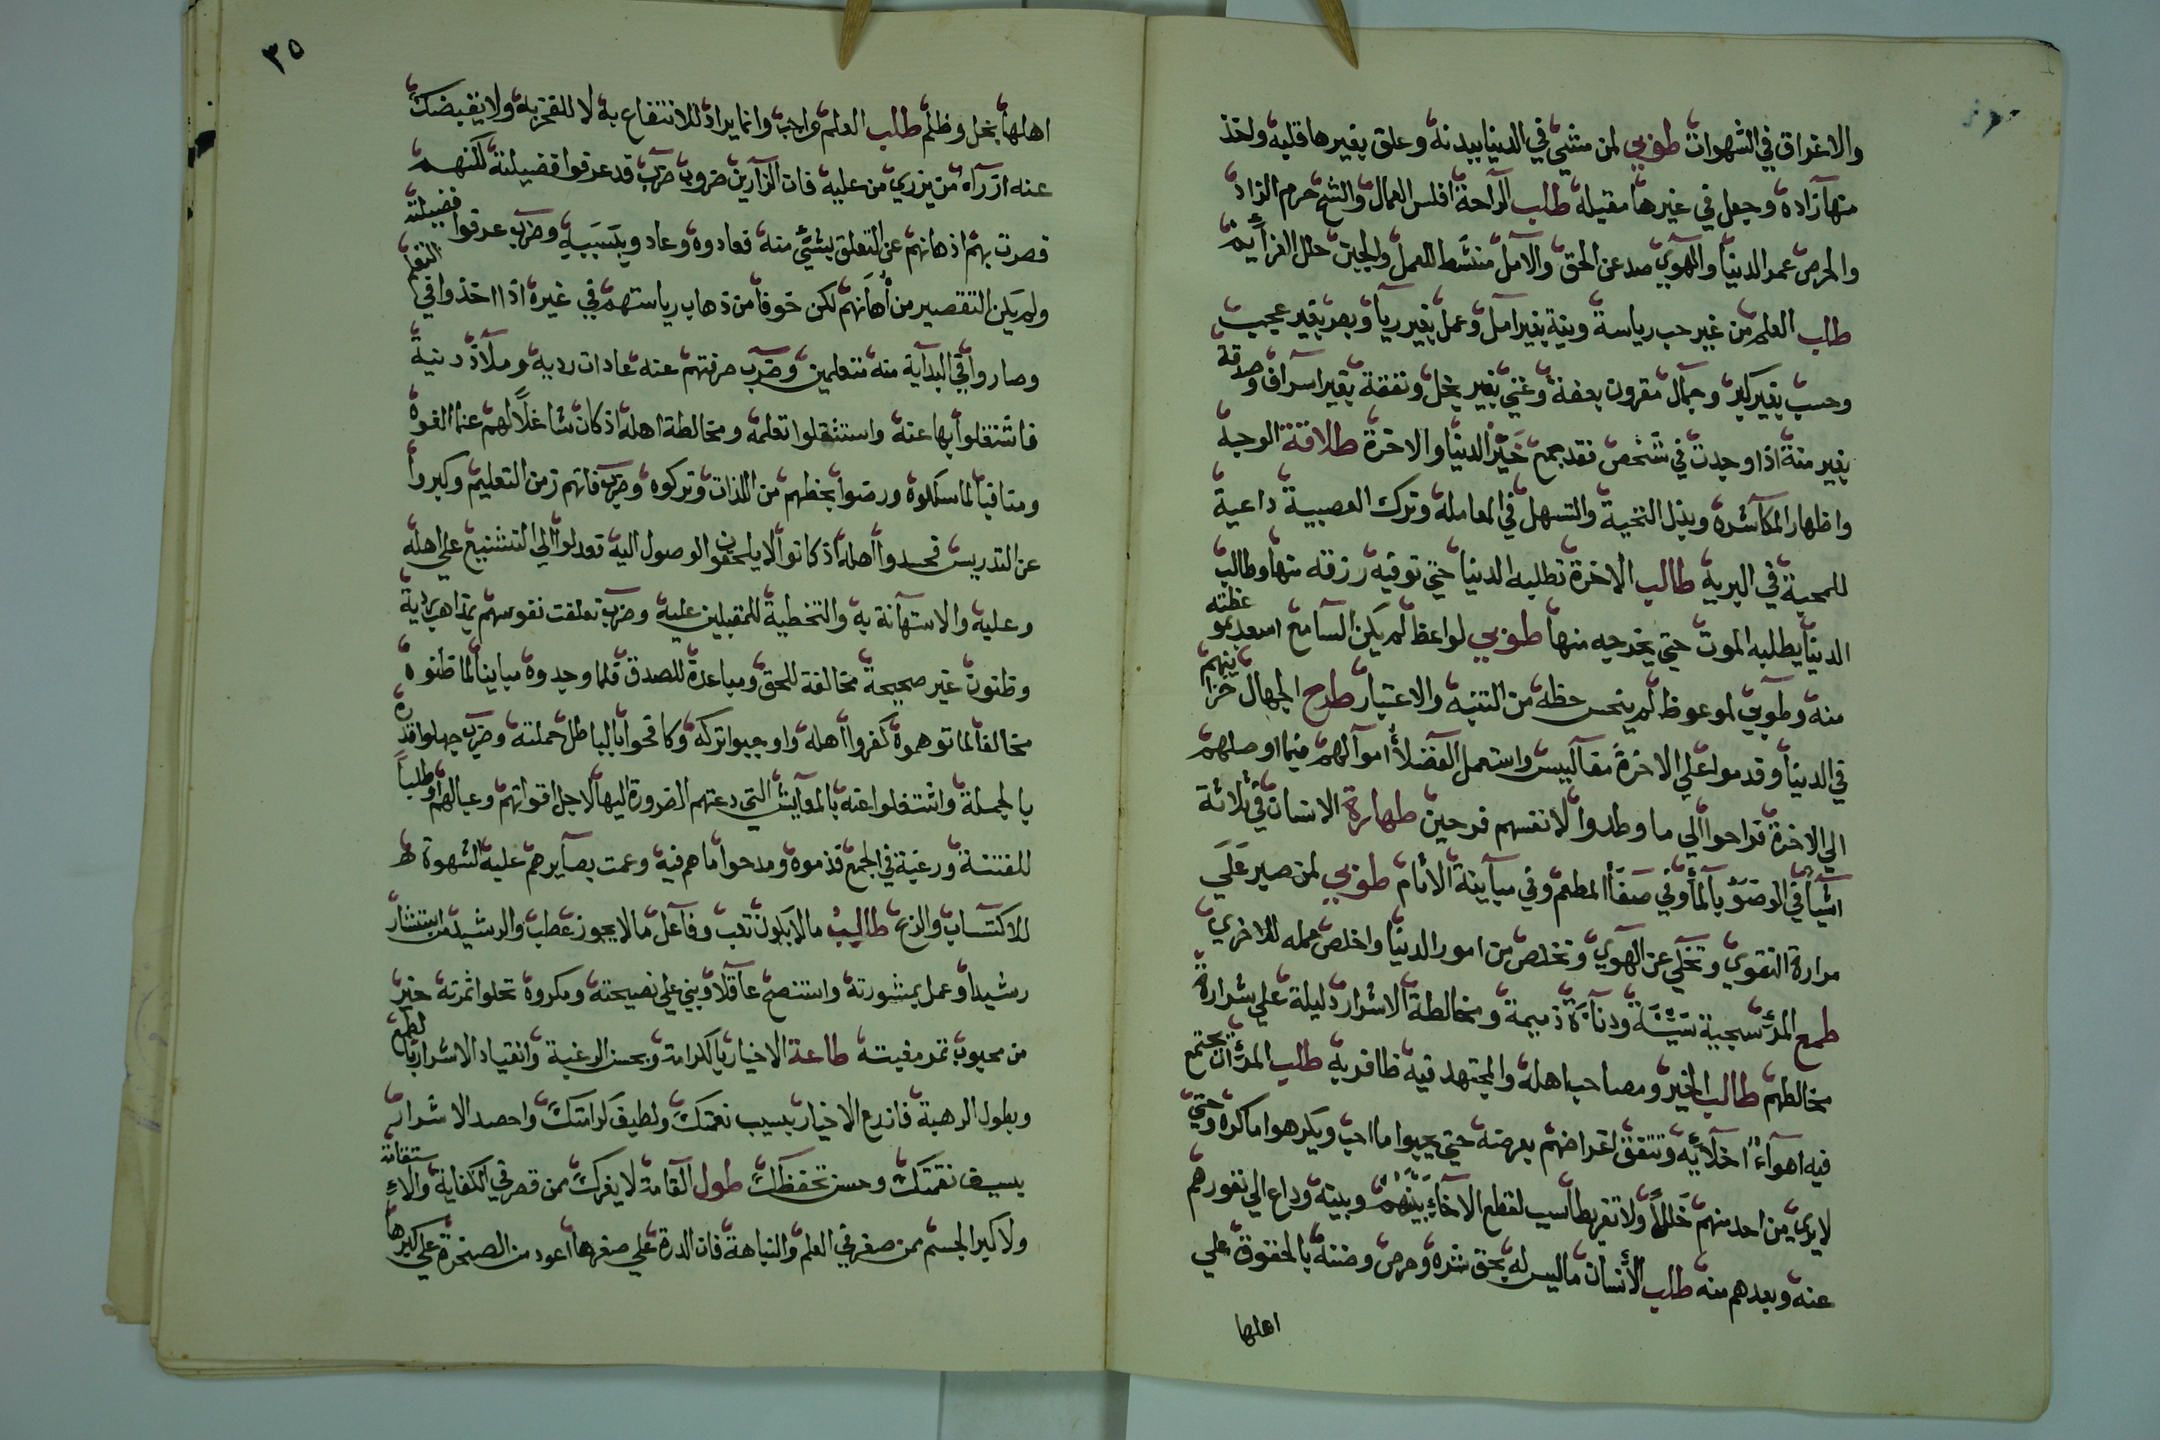 والاغراق في الشهوات طوبي لمن مشي في الدنيا ببدنه وعلق بغيرها قلبه واخذ
منها زاده وجعل في غيرها مقيله طلب الراحة افلس العمال والشح حرم الزاد
والحرص عمر الدنيا والهوي صد عن الحق والامل منشط للعمل والجبن حلل العزايم
طالب العلم من غير حب رياسة ونية بغير امل وعمل بغير ريا وبصر بغير عجب
وحسب بغير كبر وجمال مقرون بعفة وغني بغير بخل ونفقة بغير اسراف وصدقة
بغير منة اذا وجدت في شخص فقد جمع خير الدنيا والاخرة طلاقة الوجه
واظهار المكاشرة وبذل التحية والتسهل في المعاملة وترك العصبية داعية
للمحبة في البرية طالب الاخرة تطلبه الدنيا حتي توفيه رزقه منها وطالب
الدنيا يطلبه الموت حتي يخرجه منها طوبي لواعظ لم يكن السامع اسعد بموعظته
منه وطوبي لموعوظ لم يبخس حظه من التنبه والاعتبار طرح الجهال خزاينهم
في الدنيا وقدموا علي الاخرة مفاليس واستعمل الفضلا اموالهم فيما اوصلهم
الي الاخرة فراحوا الي ما وطدوا لانفسهم فرحين طهارة الانسان في ثلاثة
اشيا في الوضو بالما وفي صفا المطعم وفي مباينة الاثام طوبي لمن صبر علي
مرارة التقوي وتخلي عن الهوي وتخلص من امور الدنيا واخلص عمله للاخري
طمع المرء سجية سيئة ودناءة ذميمة ومخالطة الاشرار دليلة علي شرارة
مخالطهم طالب الخير ومصاحب اهله والمجتهد فيه ظافر به طلب المرء ان تجتمع
فيه اهواء اخلايه وتتفق اغراضهم بغرضه حتي يحبوا ما احب ويكرهوا ما كره وحتي
لا يري من احد منهم خللا ولا تفريطا سبب لقطع الاخاء بينهم وبينه وداع الي نفورهم
عنه وبعدهم منه طلب الانسان ما ليس له بحق شره وحرص وضنه بالحقوق علي
اهلها
٣٥
اهلها بخل وظلم طلب العلم واجب وانما يراد للانتفاع به لا للفخر به ولا يقبضك
عنه ازراء من يزري من عليه فان الزارين ضروب ضرب قد عرفوا فضيلته لكنهم
قصرت بهم اذهانهم عن التعلق بشيء منه فعادوه وعادو بسببه وضرب عرفوا فضيلته
ولم يكن التقصير من اذهانهم لكن خوفا من ذهاب رياستهم في غيره اذا اخذوا في التعلم
وصاروا في البداية منه متعلمين وضرب صرفتهم عنه عادات رديه وملاذ دنية
فاشتغلوا بها عنه واستثقلوا تعلمه ومخالطة اهله اذ كان شاغلا لهم عما الفوه
ومنافيا لما سلكوه ورضوا بحظهم من اللذات وتركوه وضرب فاتهم زمن التعليم وكبروا
عن التدريس فحسدوا اهله اذ كانوا لا يلحقون الوصول اليه فعدلوا الي التشنيع علي اهله
وعليه والاستهانة به والتخطية للمقبلين عليه وضرب تعلقت نفوسهم بمذاهب ردية
وظنون غير صحيحة مخالفة للحق ومباعدة للصدق فلما وجدوه مباينا لما ظنوه
مخالفا لما توهموه كفروا اهله واوجبوا تركه وكافحوا بالباطل حملته وضرب جهلوا قدره
بالجملة واشتغلوا عنه بالمعايش التي دعتهم الضرورة اليها لاجل اقواتهم وعيالهم وطلبا
للفتنة ورغبة في الجمع فذموه ومدحوا ما هم فيه وعمت بصايرهم عليه لشهوة
للاكتساب والزع طالب ما لا يكون تعب وفاعل ما لا يجوز عطب والرشيد من استشار
رشيدا وعمل بمشورته واستنصح عاقلا وبني علي نصيحته ومكروه تحلوا ثمرته خير
من محبوب تمر مغبته طاعة الاخيار بالكرامة وبحسن الرغبة وانقياد الاشرار بالطمع
وبطول الرهبة فازدع الاخيار بسبب نعمتك ولطيف كرامتك واحصد الاشرار
بسيف نقمتك وحسن تحفظك طول القامة لا يغرك ممن قصر في الكفاية والاستقامة
ولا كبر الجسم ممن صغر في العلم والنباهة فان الدرة علي صغرها اعود من الصخرة علي كبرها